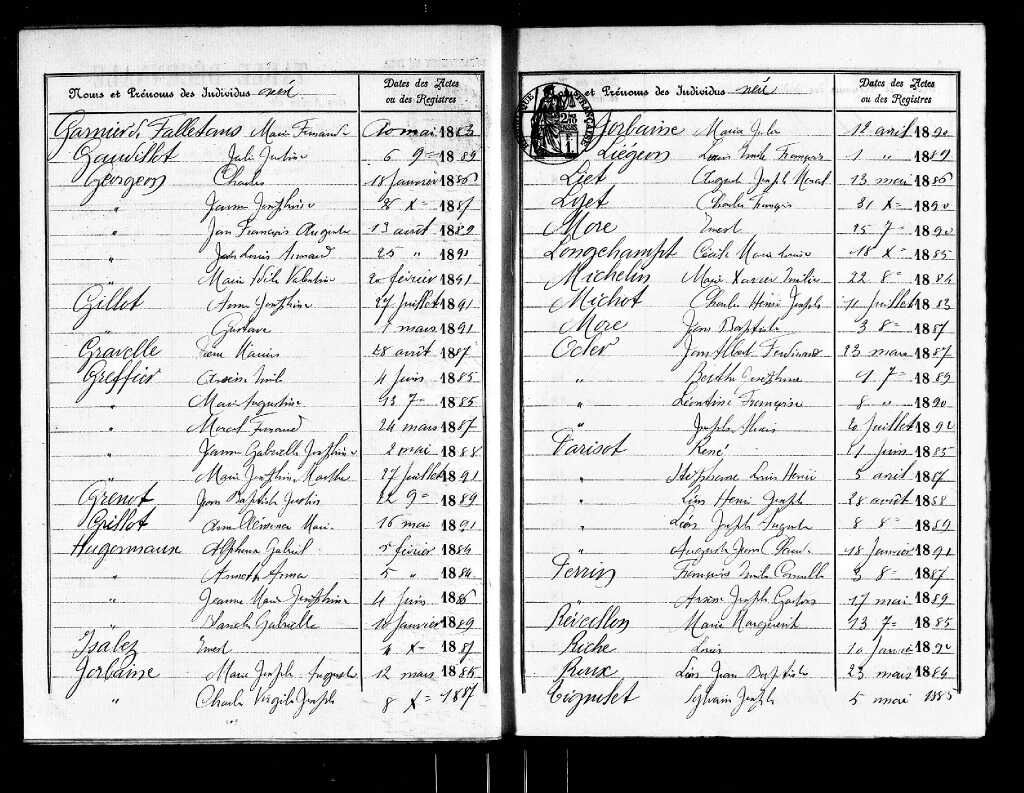 Noms et Prénoms des Individus
Dates des Actes
ou des Registres
Garnier de Falletans Marie Fernande 20 mai 1883
Gauvillot Jules Justin 6 9= 1889
Georgeon Charles 18 janvier 1886
" Jeanne Joséphine X= 1887
" Jean François Auguste 13 août 1889
" Jean Louis Armand 25 " 1890
" Marie Adèle Valentine 20 février 1891
Gillot Anna Joséphine 27 juillet 1891
" Gustave mars 1891
Gravelle Marius 28 août 1887
Greffier Emile 4 juin 1885
" Marie Augustine 13 7= 1885
" Marcel Fernand 24 mars 1887
" Jeanne Gabrielle Joséphine 2 mai 1888
" Marie Joséphine Marthe 27 juillet 1891
Grenot Jean Baptiste Justin 22 9= 1889
Grillot Marie 16 mai 1891
Hugermaun Alphonse Gabriel 5 février 1884
" Anna 5 " 1884
" Jeanne Marie Joséphine 4 juin 1886
" Gabrielle 10 janvier 1889
Isalez Ernest 4 X= 1887
Jorbaine Marie Joseph Auguste 12 mars 1885
" Charles Virgile Joseph 8 X= 1887
Noms et Prénoms des Individus
Dates des Actes
ou des Registres
Jorbaine Maria Julia 12 avril 1890
Liégeon Louis Emile François 1 " 1889
Liet Auguste Joseph Marcel 13 mai 1886
Lyet Charles François 31 X= 1890
More Ernest 25 7= 1890
Longchampt Cécile Marie Louise 18 X= 1885
Michelin Marie Xavier Emilien 22 8= 1884
Michot Charles Henri Joseph 11 juillet 1883
More Jean Baptiste 3 8= 1887
Oder Jean Albert Ferdinand 23 mars 1887
" Berthe Joséphine 7= 1889
" Léontine Françoise 8 " 1890
" Joseph 20 juillet 1892
Parisot René 21 juin 1885
" Stéphane Louis Henri 5 avril 1887
" Léon Henri Joseph 28 août 1888
" Léon Joseph Auguste 8 8= 1889
" Auguste Jean 18 janvier 1891
Perrin François Emile Camille 3 8= 1887
" Joseph Gaston 17 mai 1889
Réveillon Marie Marguerite 13 7= 1885
Riche Louis 10 janvier 1890
Roux Léon Jean Baptiste 23 mars 1886
Tignolet Sylvain Joseph 5 mai 1885